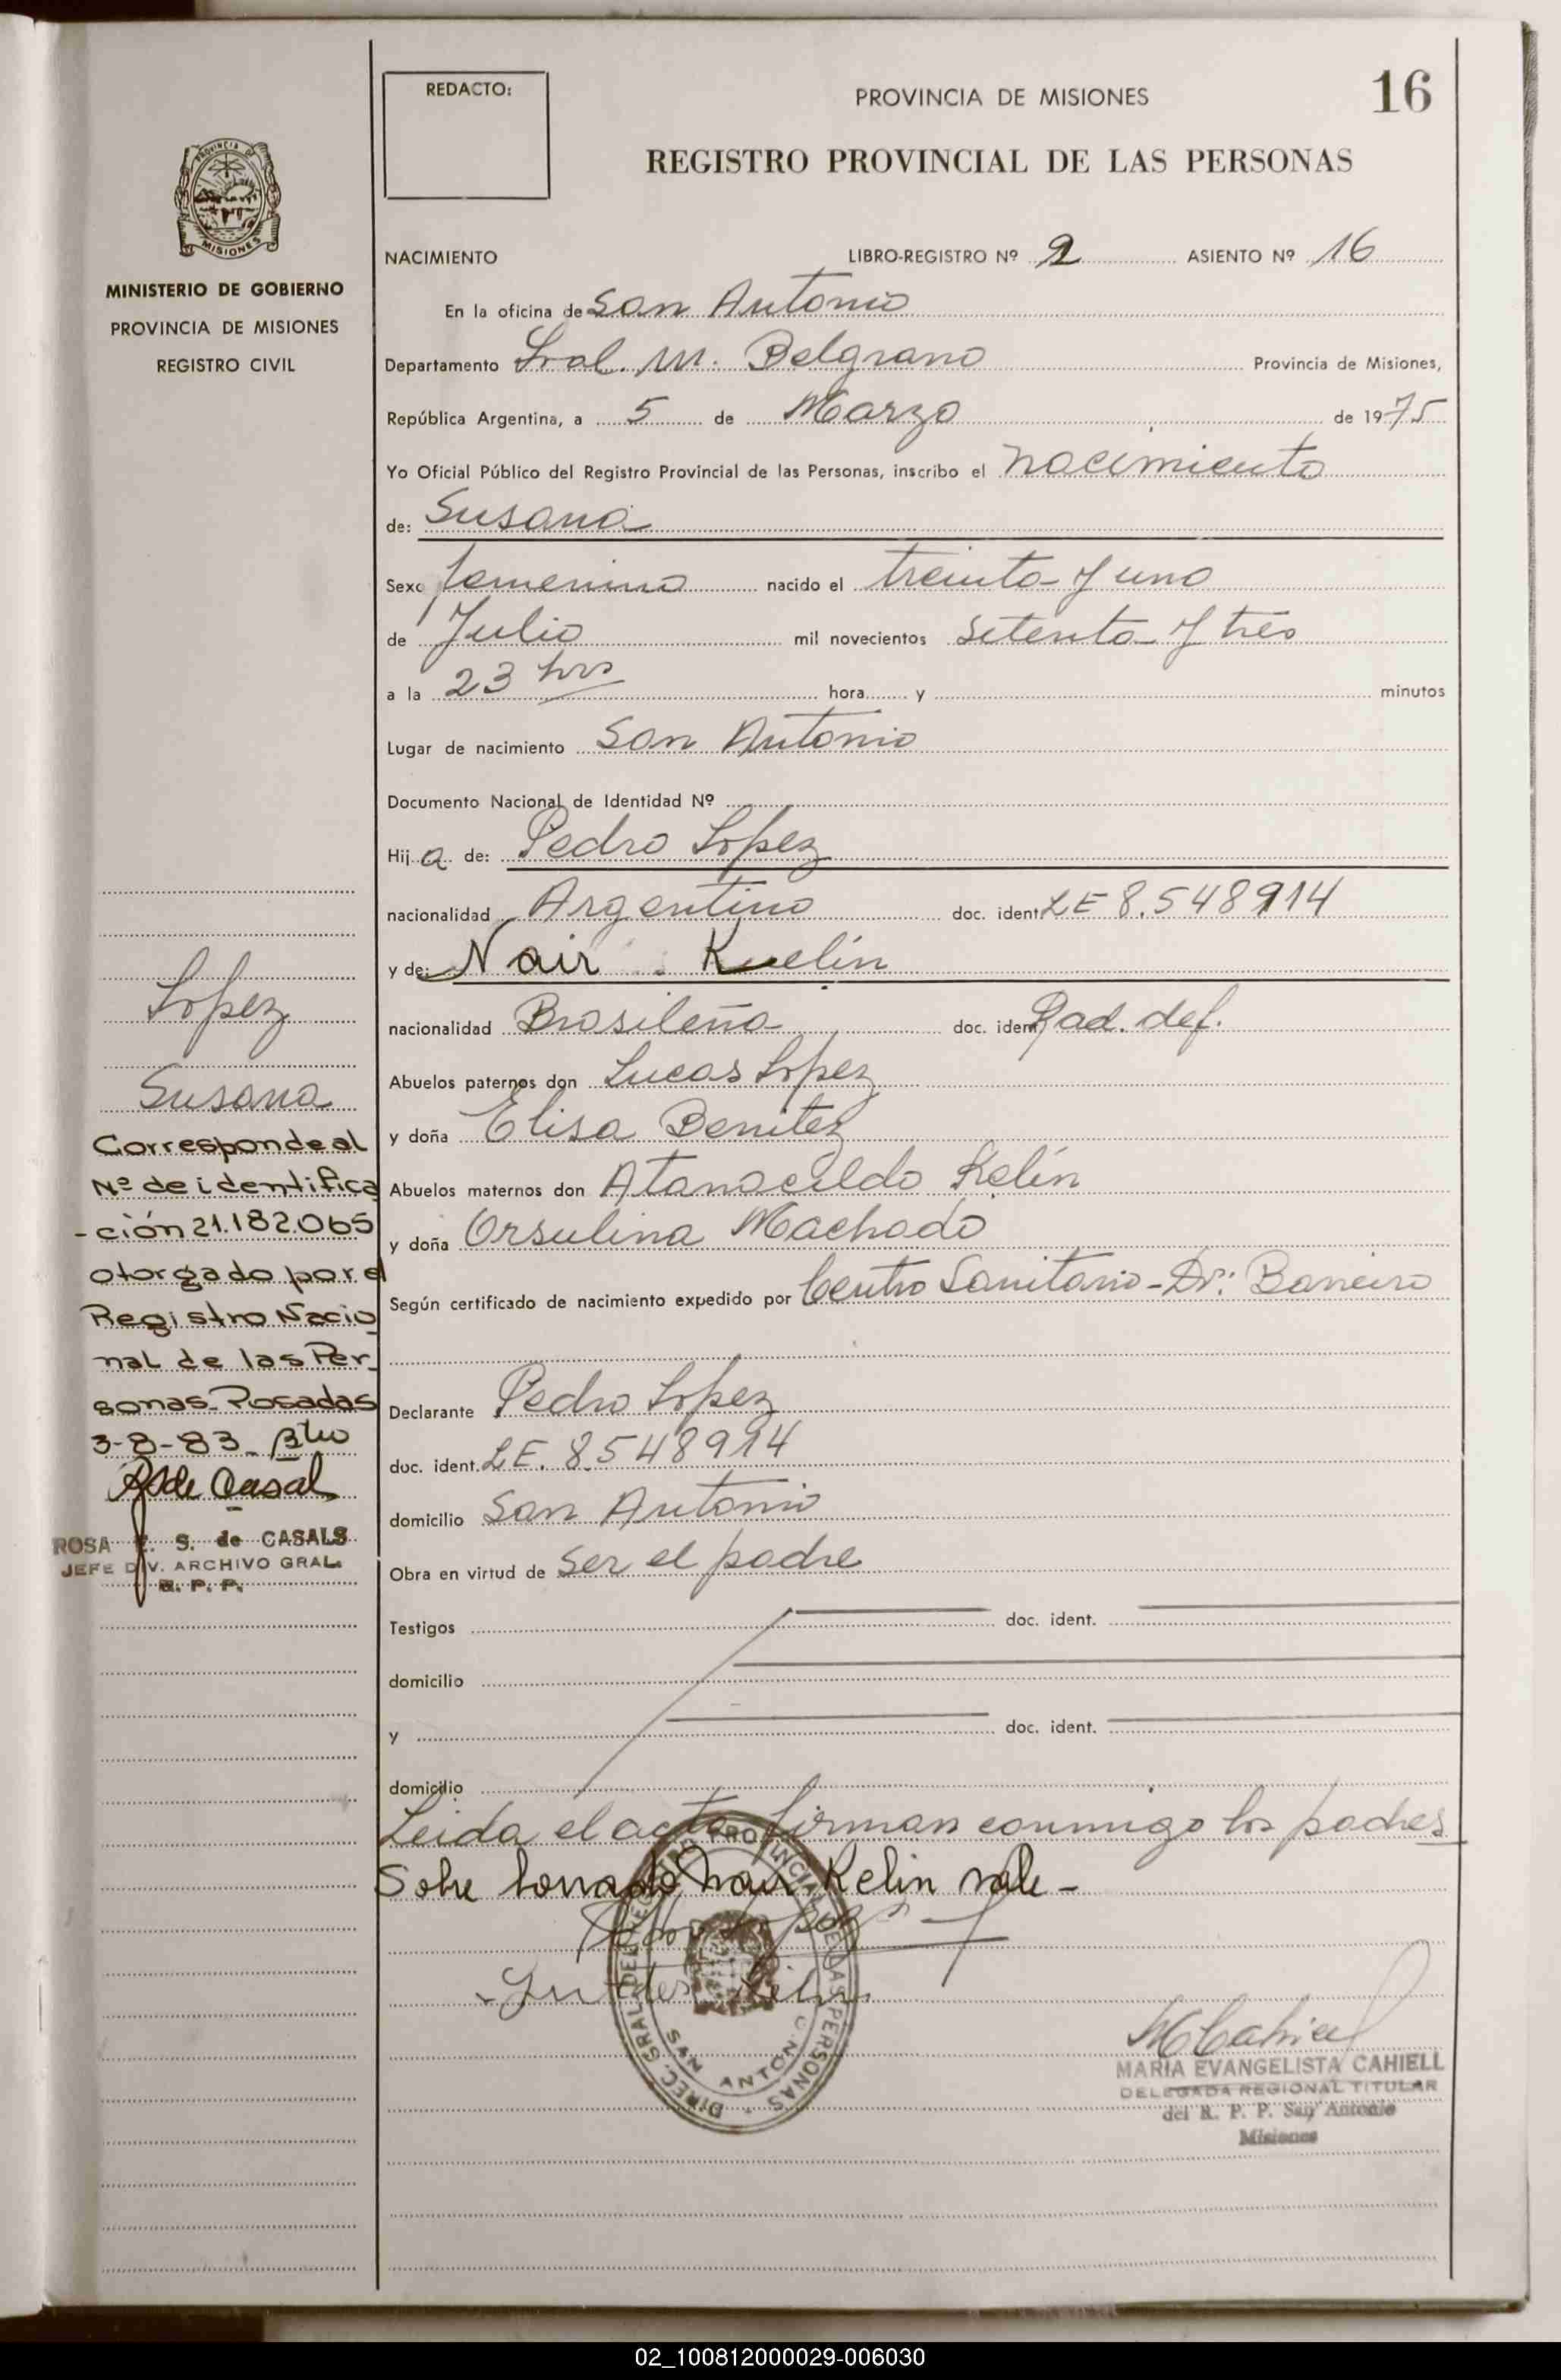 REDACTO:
PROVINCIA DE MISIONES
16
REGISTRO PROVINCIAL DE LAS PERSONAS
PROVINCIA DE
MISIONES
MINISTERIO DE GOBIERNO
PROVINCIA DE MISIONES
REGISTRO CIVIL
NACIMIENTO LIBRO-REGISTRO Nº 2 ASIENTO Nº 16
En la oficina de San Antonio
Departamento Gral. M. Belgrano Provincia de Misiones,
República Argentina, a 5 de Marzo de 1975
Yo Oficial Público del Registro Provincial de las Personas, inscribo el nacimiento
de: Susana
Sexo femenino nacido el treinta y uno
de Julio mil novecientos setenta y tres
a la 23 hrs hora y minutos
Lugar de nacimiento San Antonio
Documento Nacional de Identidad Nº
Hij a de: Pedro Lopez
nacionalidad Argentino doc. ident. LE 8.548914
y de: Nair Kuelin
nacionalidad Brasileña doc. ident. Rad. def.
Abuelos paternos don Lucas Lopez
y doña Elisa Benitez
Abuelos maternos don Atanacildo Kelín
y doña Orsulina Machado
Según certificado de nacimiento expedido por Centro Sanitario - Dr: Barreiro
Declarante Pedro Lopez
doc. ident. L.E. 8.548914
domicilio San Antonio
Obra en virtud de ser el padre
Testigos doc. ident.
domicilio
y doc. ident.
domicilio
Leida el acta firman conmigo los padres
Sobre borrado Nair Kelin vale -
Kelin
DIREC. GRAL. DEL REG. PROVINCIAL DE LAS PERSONAS
SAN ANTONIO
MARIA EVANGELISTA CAHIELL
DELEGADA REGIONAL TITULAR
del R. P. P. San Antonio
Misiones
Lopez
Susana
Corresponde al
Nº de identifica
-ción 21.182.065
otorgado por el
Registro Nacio
nal de las Per
sonas_Posadas
3-8-83_
RSde Casal
ROSA E. S. de CASALS
JEFE DIV. ARCHIVO GRAL.
R. P. P.
02_100812000029-006030